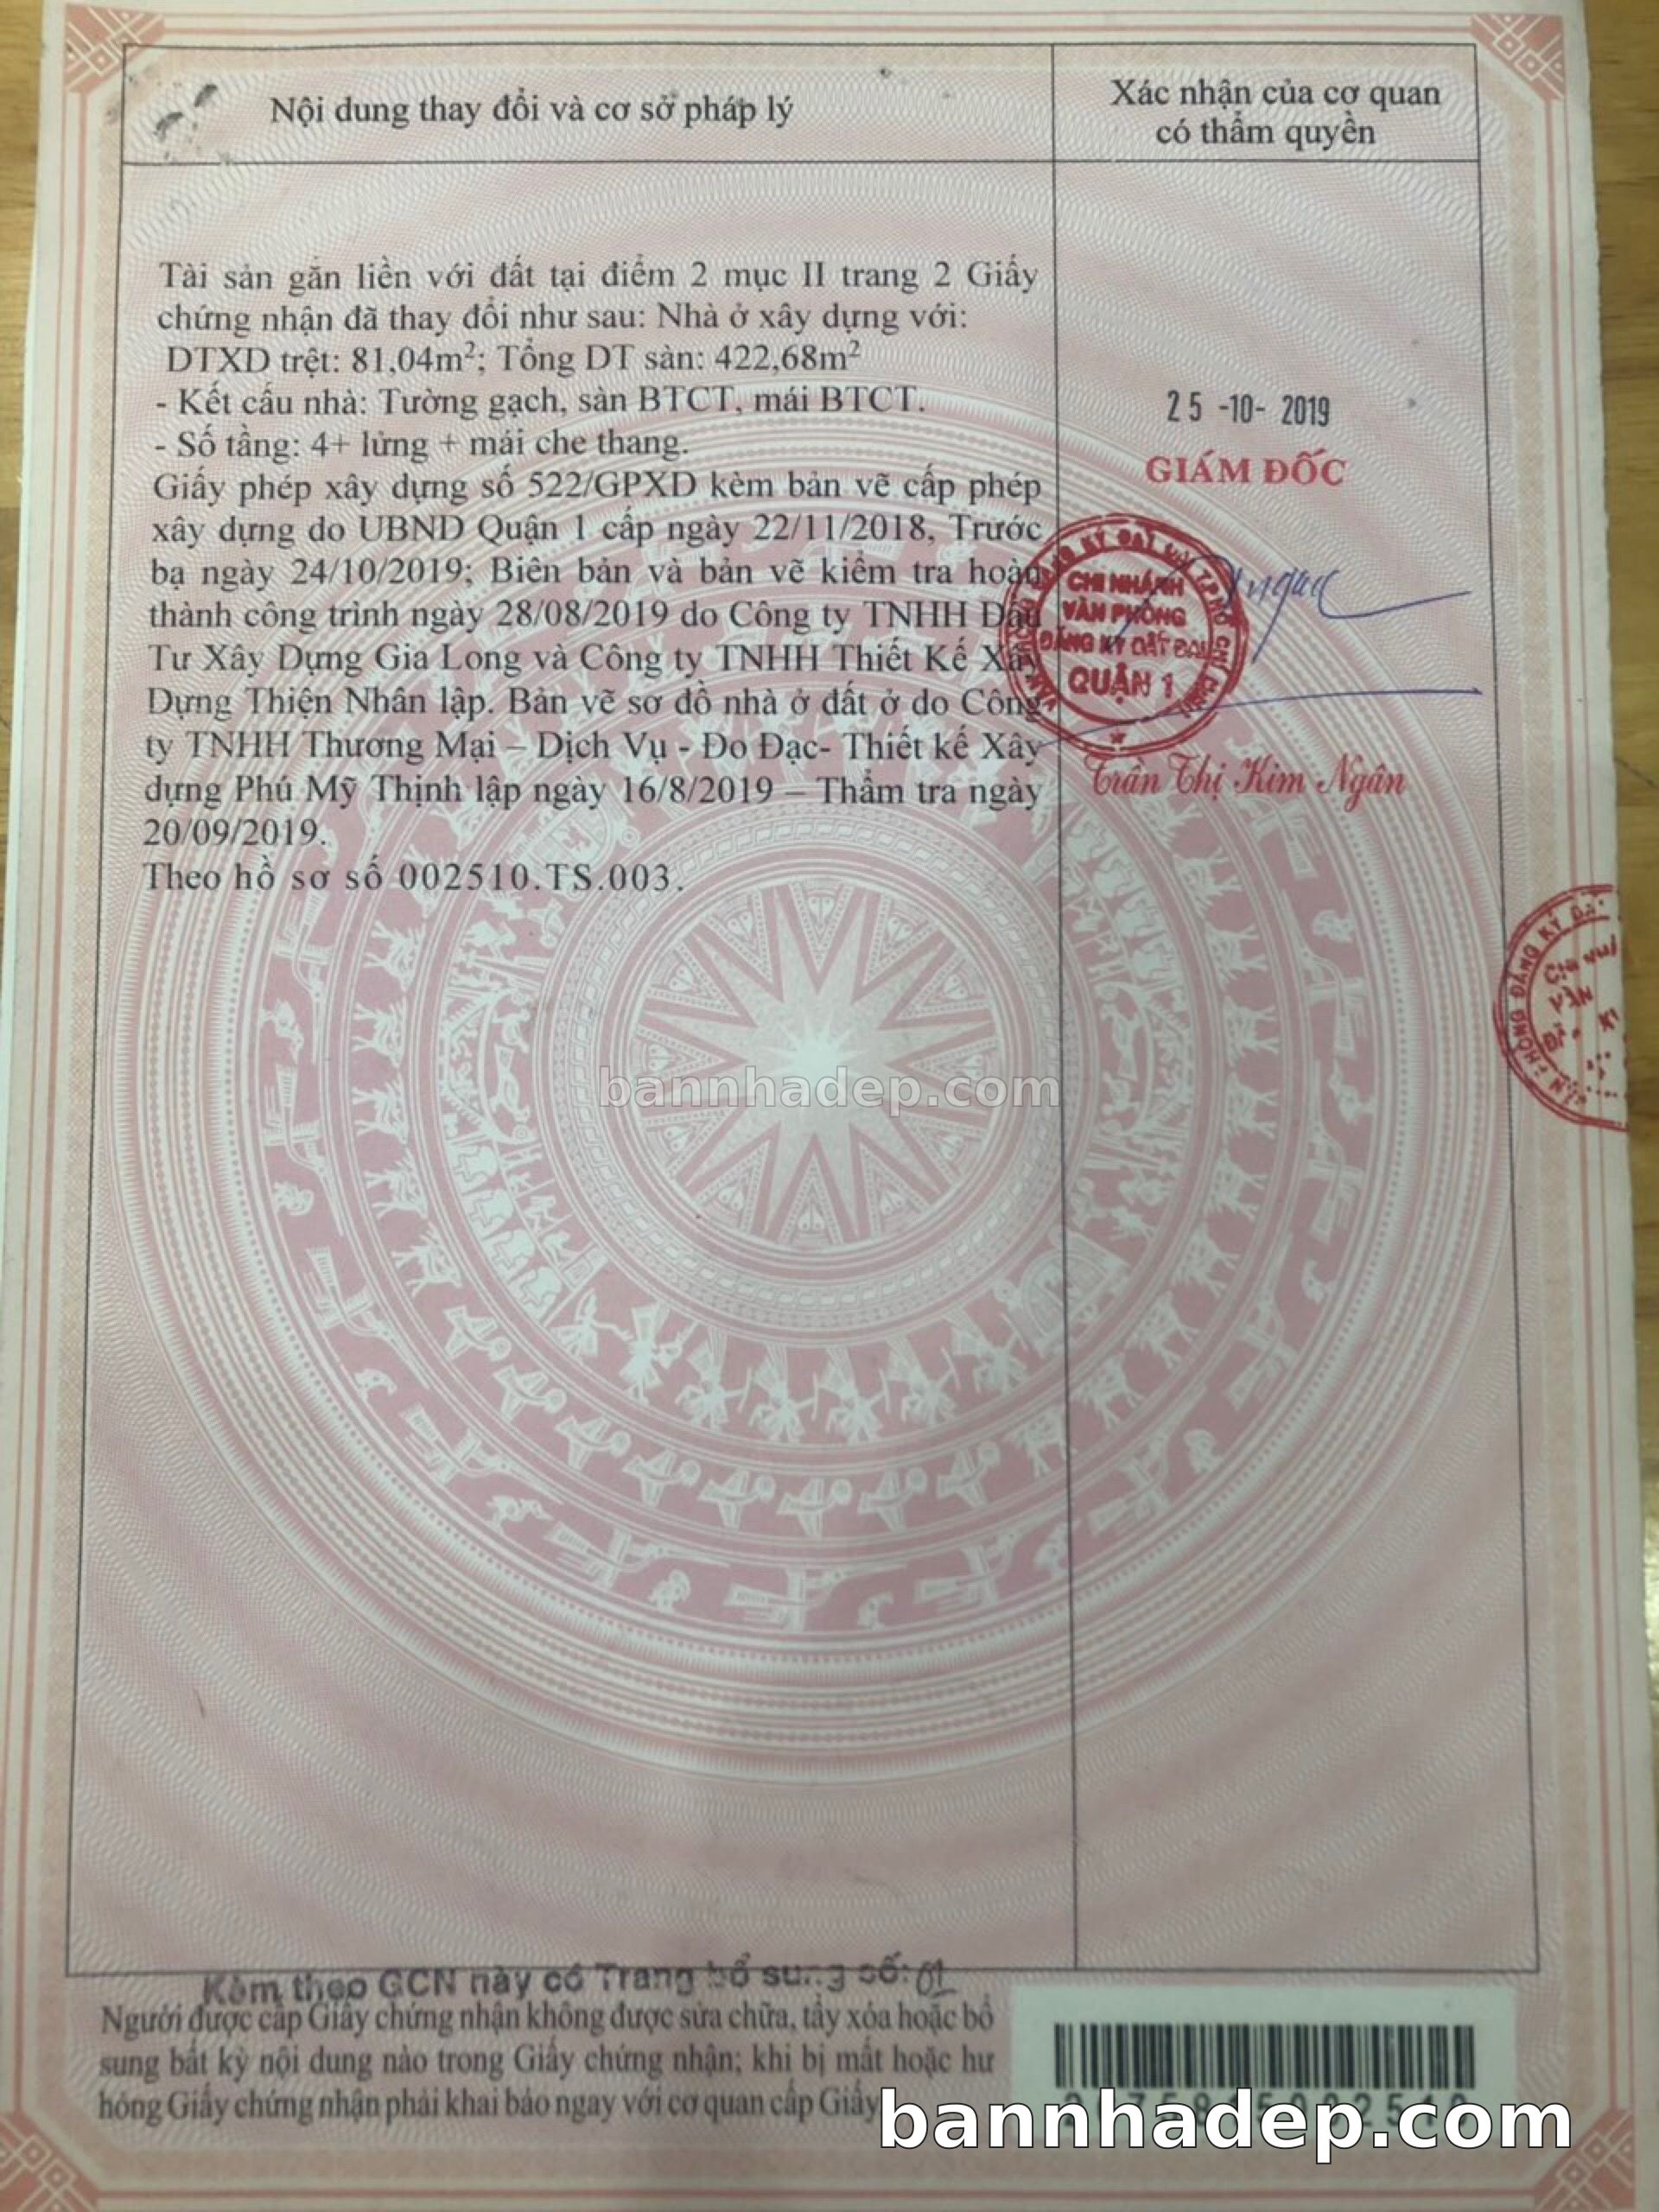 Nội dung thay đổi và cơ sở pháp lý
Xác nhận của cơ quan
có thẩm quyền
Tài sản gắn liền với đất tại điểm 2 mục II trang 2 Giấy
chứng nhận đã thay đổi như sau: Nhà ở xây dựng với:
DTXD trệt: 81,04m²; Tổng DT sàn: 422,68m²
- Kết cấu nhà: Tường gạch, sàn BTCT, mái BTCT.
- Số tầng: 4+ lửng + mái che thang.
Giấy phép xây dựng số 522/GPXD kèm bản vẽ cấp phép
xây dựng do UBND Quận 1 cấp ngày 22/11/2018, Trước
bạ ngày 24/10/2019; Biên bản và bản vẽ kiểm tra hoàn
thành công trình ngày 28/08/2019 do Công ty TNHH Đầu
Tư Xây Dựng Gia Long và Công ty TNHH Thiết Kế Xây
Dựng Thiện Nhân lập. Bản vẽ sơ đồ nhà ở đất ở do Công
ty TNHH Thương Mại – Dịch Vụ - Đo Đạc- Thiết kế Xây
dựng Phú Mỹ Thịnh lập ngày 16/8/2019 – Thẩm tra ngày
20/09/2019.
Theo hồ sơ số 002510.TS.003.
25 -10- 2019
GIÁM ĐỐC
CHI NHÁNH
VĂN PHÒNG
ĐĂNG KÝ ĐẤT ĐAI
QUẬN 1
Trần Thị Kim Ngân
bannhadep.com
Kèm theo GCN này có Trang bổ sung số: 01
Người được cấp Giấy chứng nhận không được sửa chữa, tẩy xóa hoặc bổ
sung bất kỳ nội dung nào trong Giấy chứng nhận; khi bị mất hoặc hư
hỏng Giấy chứng nhận phải khai báo ngay với cơ quan cấp Giấy
bannhadep.com